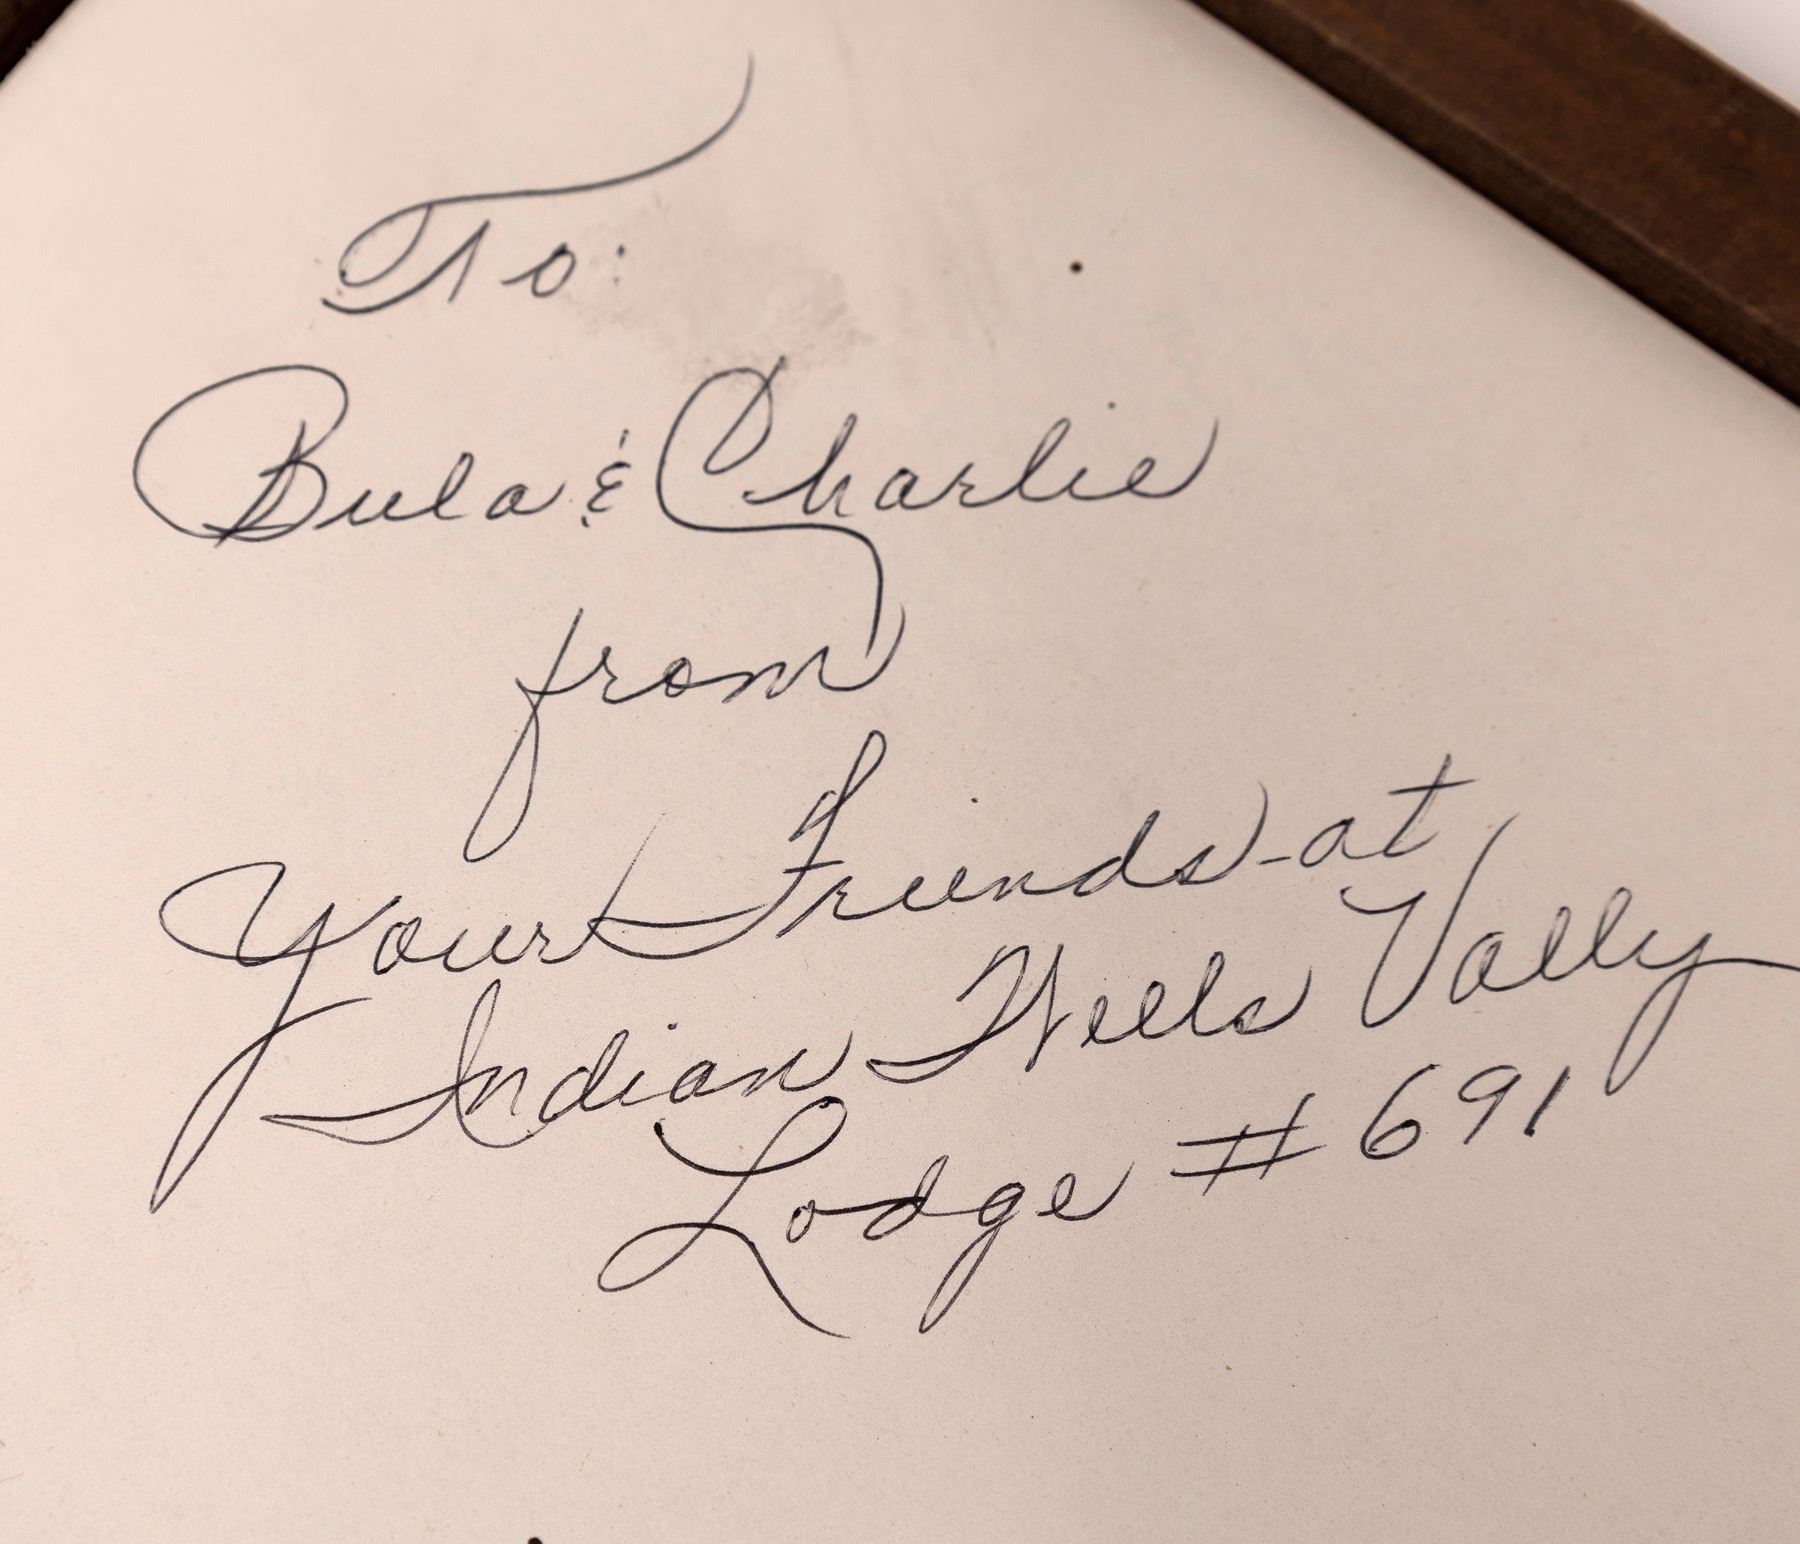 To:
Bula & Charlie
from
Your Friends - at
Indian Wells Vally
Lodge # 691